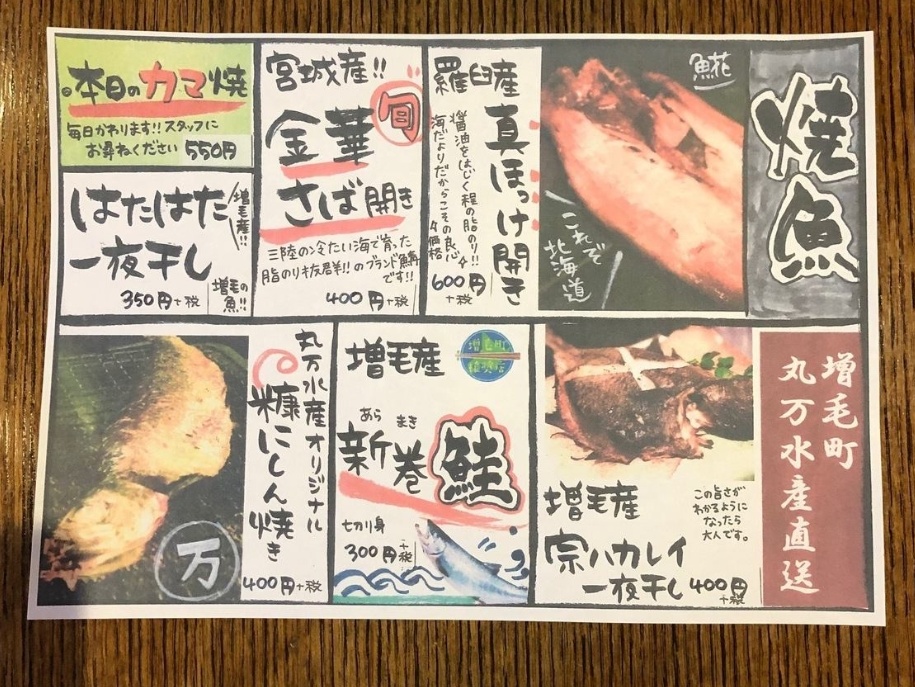 焼魚
魚花
これぞ
北海道
羅臼産
真ほっけ開き
醤油をはじく程の脂のり!!
海だよりだからこその良心価格
600円
+税
宮城産!!
旬
金華
さば開き
三陸の冷たい海で育った
脂のり抜群!!のブランド鯖
です!!
400円+税
本日のカマ焼
毎日かわります!!スタッフに
お尋ねください 550円
はたはた
一夜干し
増毛産!!
増毛の
魚!!
350円+税
増毛町
丸万水産直送
増毛産
宗ハカレイ
一夜干し 400円
+税
この旨さが
わかるように
なったら
大人です。
増毛産
増毛町
あら まき
新巻
鮭
切り身
300円+税
丸万水産オリジナル
糠にしん焼き
400円+税
万